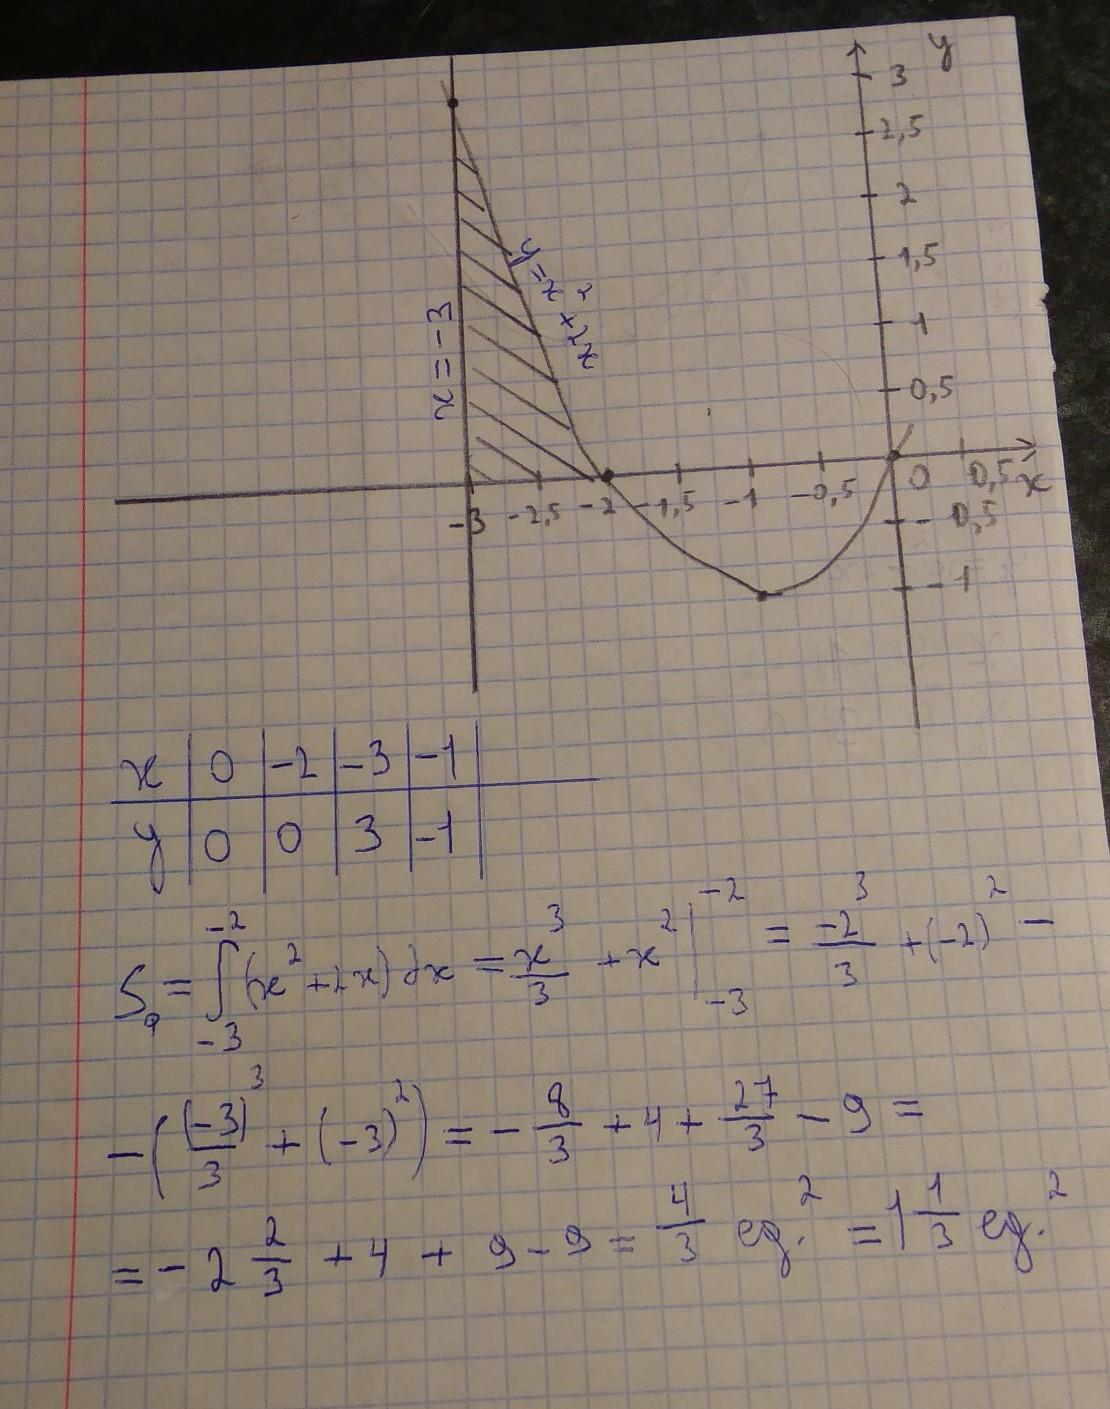 y
3
2,5
2
1,5
1
0,5
x = -3
y = x² + 2x
-3 -2,5 -2 -1,5 -1 -0,5 0 0,5 x
-0,5
-1
x | 0 | -2 | -3 | -1
y | 0 | 0 | 3 | -1
S = ∫_{-3}^{-2} (x² + 2x) dx = x³/3 + x² |_{-3}^{-2} = -2³/3 + (-2)² -
- ((-3)³/3 + (-3)²) = - 8/3 + 4 + 27/3 - 9 =
= - 2 2/3 + 4 + 9 - 9 = 4/3 ед.² = 1 1/3 ед.²